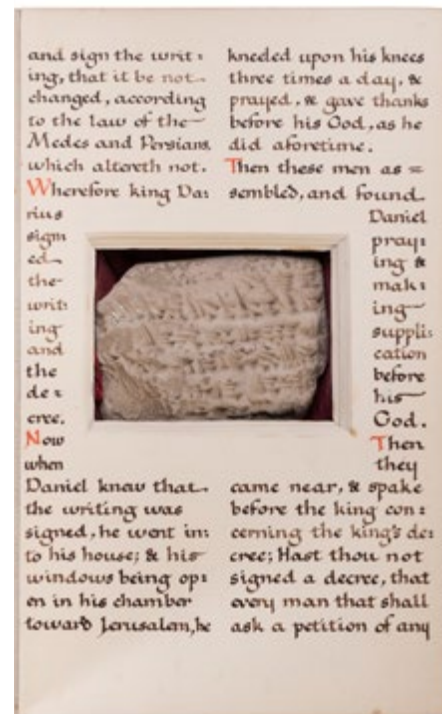 and sign the writ:
ing, that it be not
changed, according
to the law of the
Medes and Persians,
which altereth not.
Wherefore king Da:
rius
sign
ed
the
writ:
ing
and
the
de:
cree.
Now
when
Daniel knew that
the writing was
signed, he went in:
to his house; & his
windows being op:
en in his chamber
toward Jerusalem, he
kneeled upon his knees
three times a day, &
prayed, & gave thanks
before his God, as he
did aforetime.
Then these men as=
sembled, and found
Daniel
pray:
ing &
mak:
ing
suppli:
cation
before
his
God.
Then
they
came near, & spake
before the king con:
cerning the king's de:
cree; Hast thou not
signed a decree, that
every man that shall
ask a petition of any